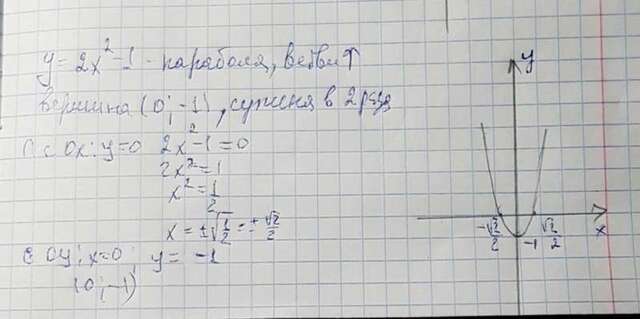 y = 2x² - 1 - парабола, ветви ↑
вершина (0; -1), сужена в 2 раза
∩ с Ox: y = 0 2x² - 1 = 0
2x² = 1
x² = 1/2
x = ±√(1/2) = ±√2/2
с Oy: x = 0; y = -1
(0; -1)
y
x
-√2/2
-1
√2/2